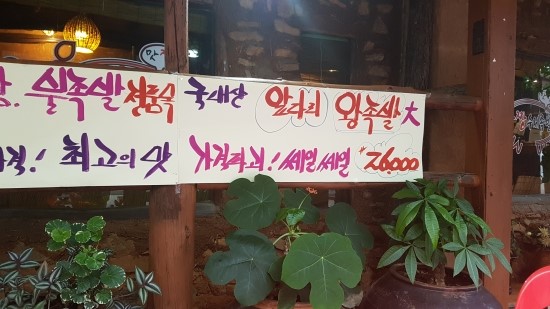 실족발 국내산 앞다리 왕족발 大
격! 최고의 맛 가격파괴! 쎄일쎄일 ₩26,000